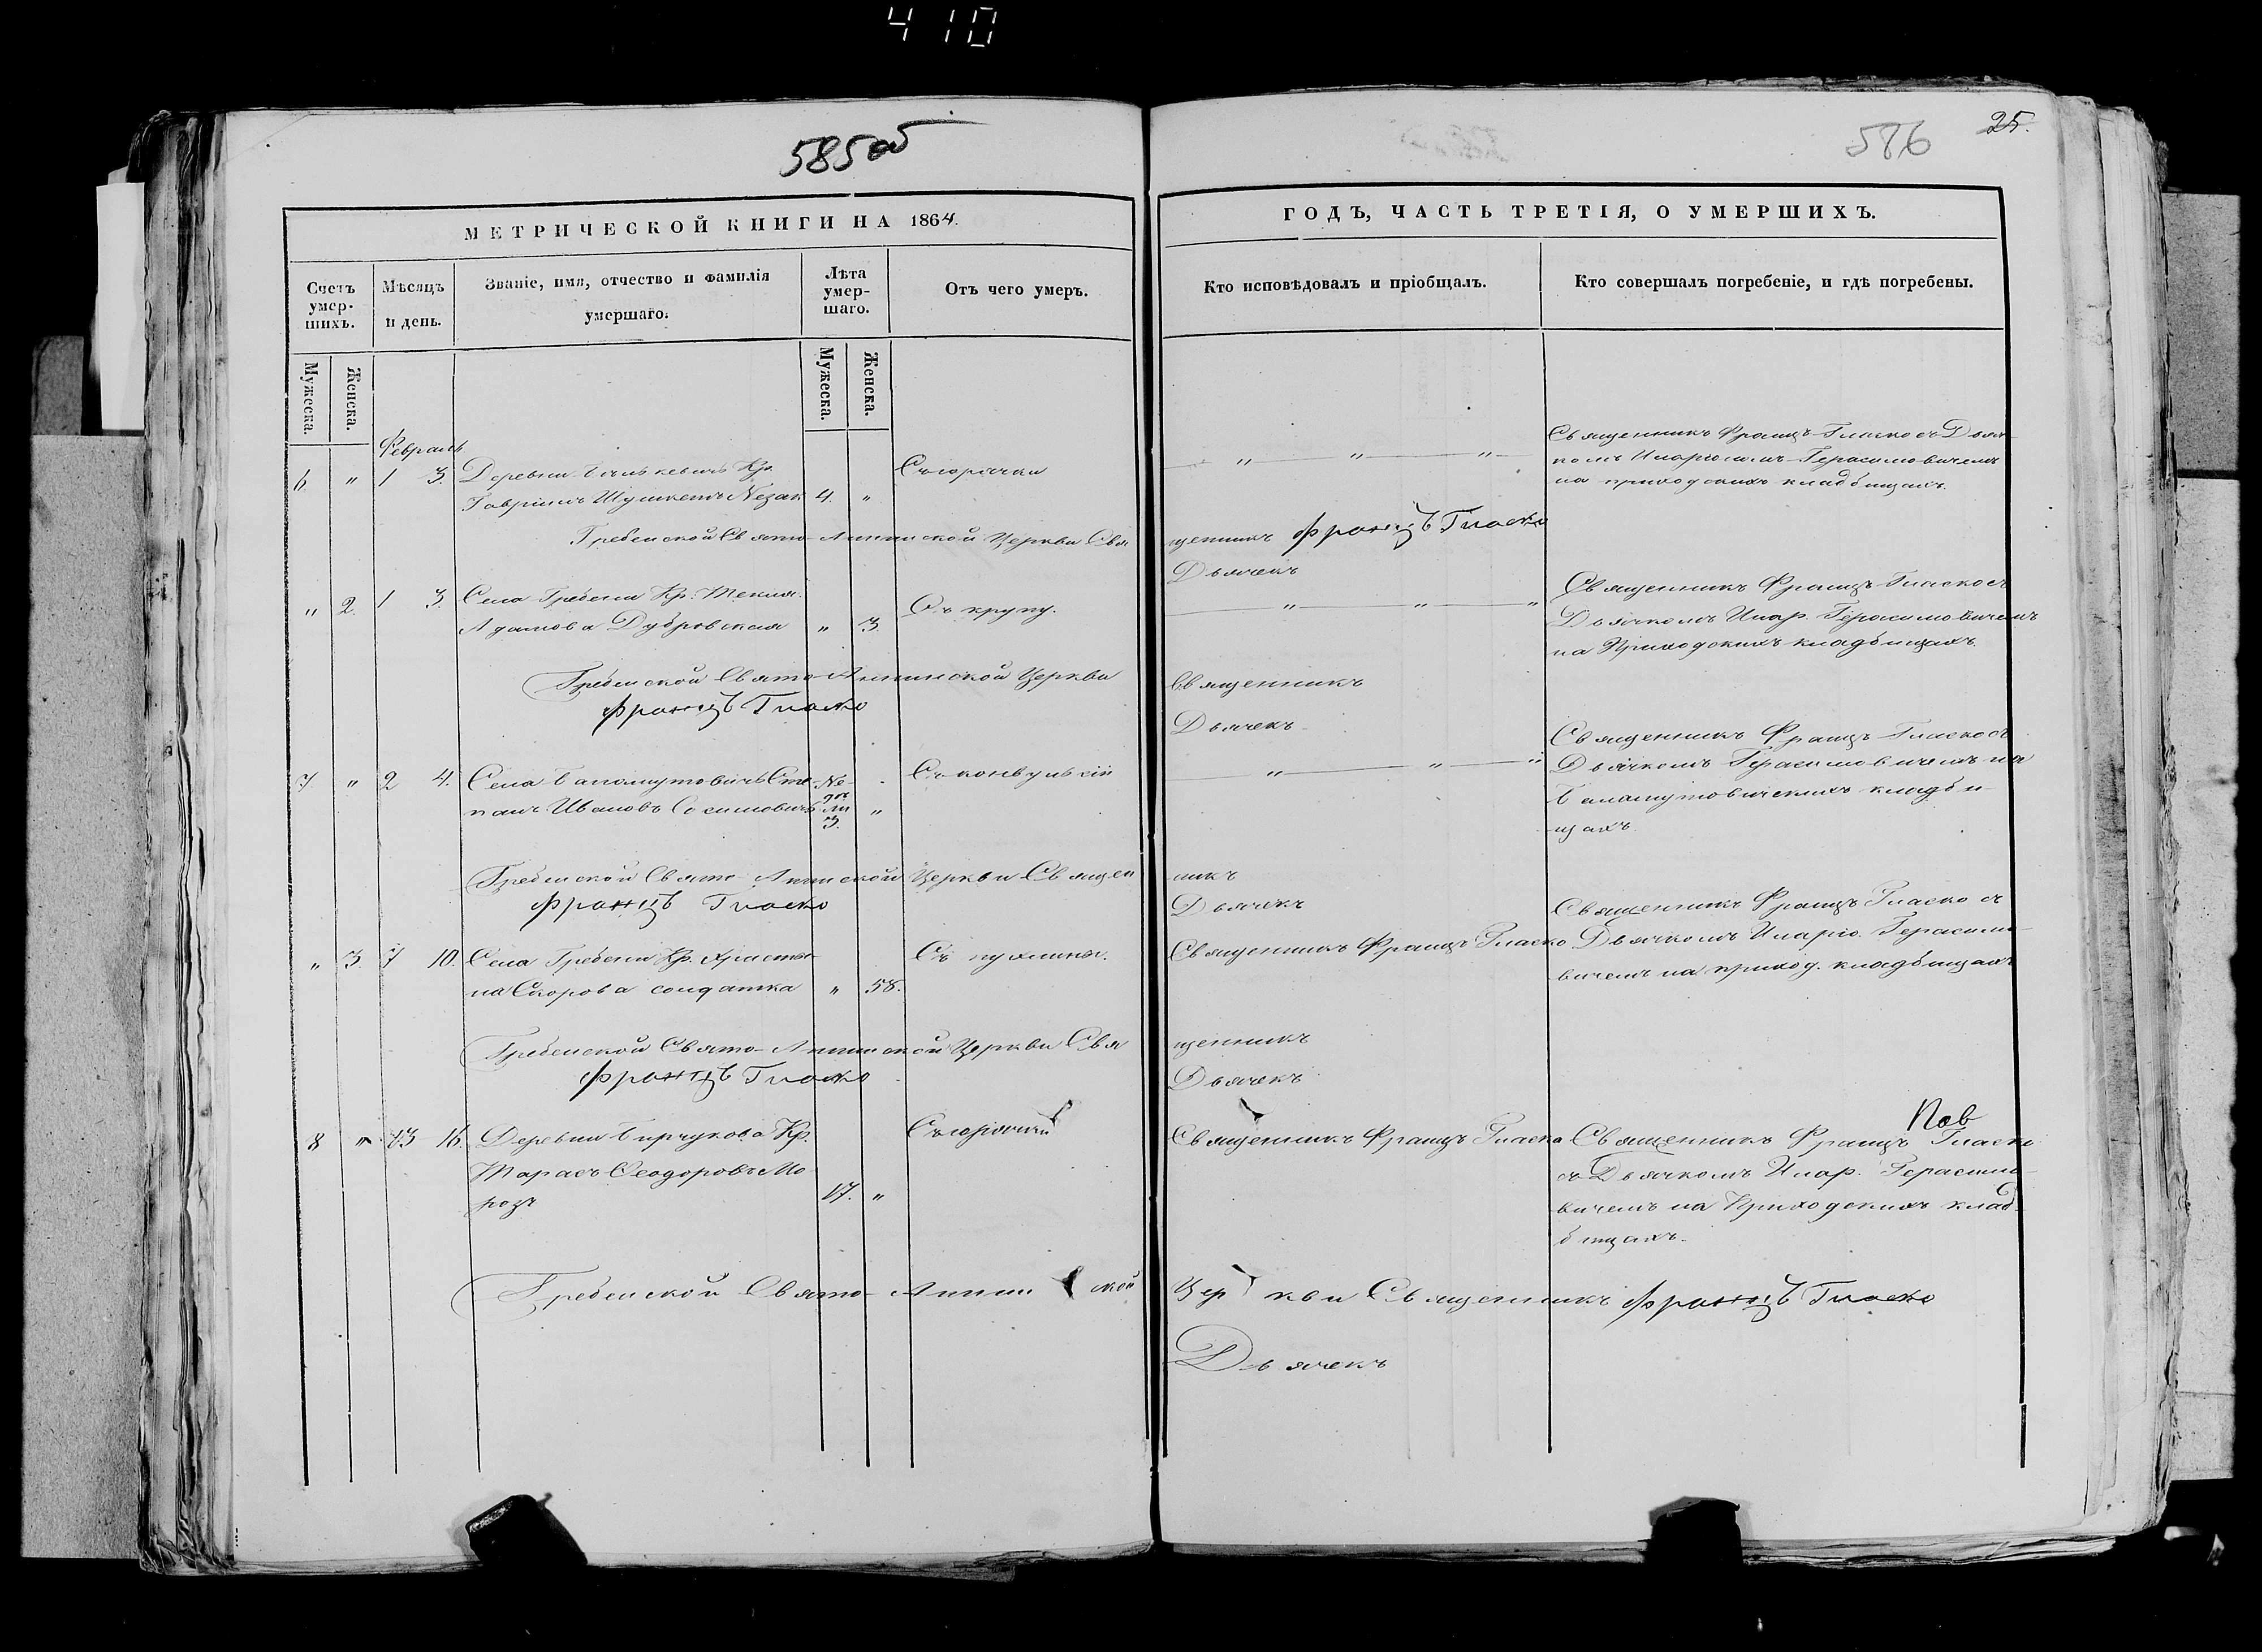 410
585 об
586
25.
МЕТРИЧЕСКОЙ КНИГИ НА 1864.
ГОДЪ, ЧАСТЬ ТРЕТІЯ, О УМЕРШИХЪ.
Счетъ умер-шихъ.
Мѣсяцъ и день.
Званіе, имя, отчество и фамилія умершаго.
Лѣта умер-шаго.
Отъ чего умеръ.
Кто исповѣдовалъ и пріобщалъ.
Кто совершалъ погребеніе, и гдѣ погребены.
Мужеска.
Женска.
Мужеска.
Женска.
Февраль
6 " 1 3. Деревни Кр. Съ горячки
Гавріилъ 4. "
" " "
Священникъ Францъ Гласко съ Дьяч-
комъ Иларіономъ Герасимовичемъ
на приходскихъ кладбищахъ.
Гребенской Свято-Аннинской Церкви Свя щенникъ Францъ Гласко
Дьячекъ
" 2. 1 3. Села Гребени Кр. Текля Съ крупу.
Адамова Дубровская " 3.
" " "
Священникъ Францъ Гласко съ
Дьячкомъ Илар. Герасимовичемъ
на Приходскихъ кладбищахъ.
Гребенской Свято-Аннинской Церкви Священникъ
Францъ Гласко
Дьячекъ
7. " 2 4. Села Сте- Не- Съ конвульсій
панъ Ивановъ дѣ ли 3. "
" " "
Священникъ Францъ Гласко съ
Дьячкомъ Герасимовичемъ на
кладби-
щахъ.
Гребенской Свято-Аннинской Церкви Священ никъ
Францъ Гласко
Дьячекъ
" 3. 7 10. Села Гребени Кр. Христи- Съ пухлины.
на Скорова солдатка " 58.
Священникъ Францъ Гласко
Священникъ Францъ Гласко съ
Дьячкомъ Иларіо. Герасимо-
вичемъ на приход. кладбищахъ
Гребенской Свято-Аннинской Церкви Свя щенникъ
Францъ Гласко
Дьячекъ
8 " 13 16. Деревни Бирчукова Кр. Съ горячки
Тарасъ Ѳеодоровъ Мо-
розъ 17. "
Священникъ Францъ Гласко
Священникъ Францъ Гласко
съ Дьячкомъ Илар. Герасимо-
вичемъ на Приходскихъ клад-
бищахъ.
Гребенской Свято-Аннинской Церкви Священникъ Францъ Гласко
Дьячекъ